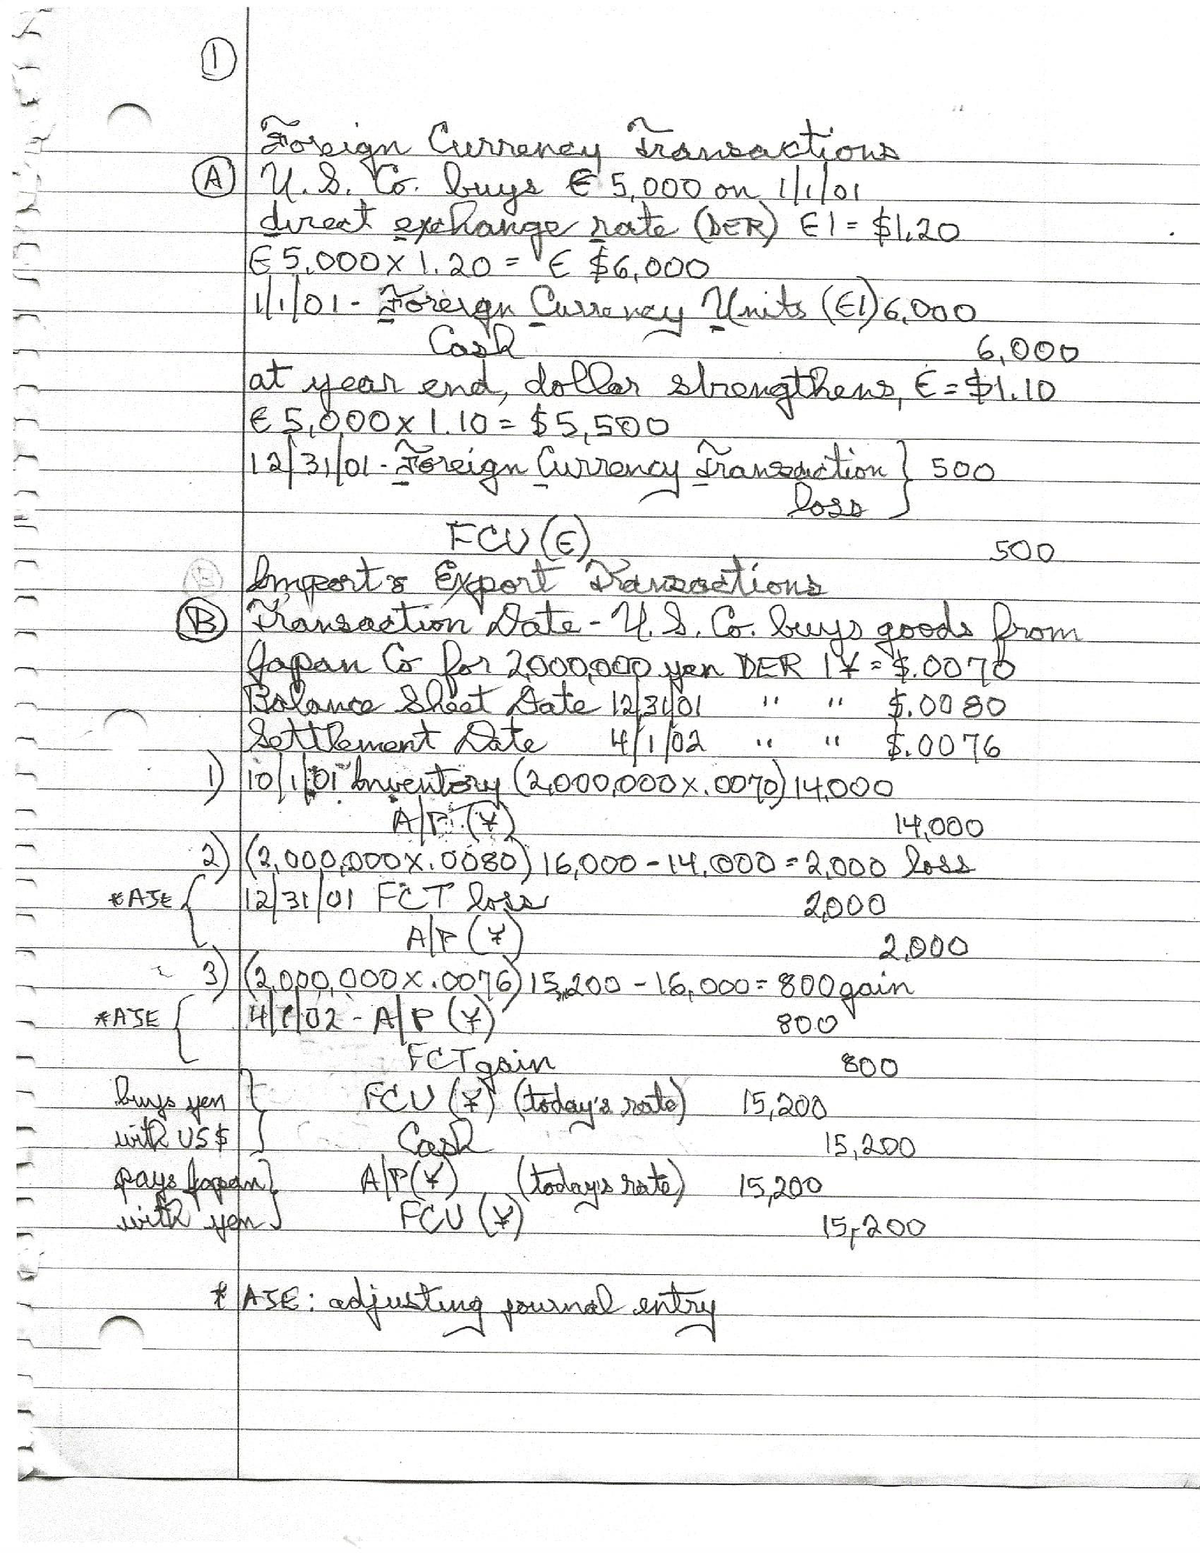 1
Foreign Currency Transactions
A U.S. Co. buys € 5,000 on 1/1/01
direct exchange rate (DER) €1 = $1.20
€ 5,000 x 1.20 = € $6,000
1/1/01 - Foreign Currency Units (€1) 6,000
Cash 6,000
at year end, dollar strengthens, € = $1.10
€ 5,000 x 1.10 = $5,500
12/31/01 - Foreign Currency Transaction } 500
loss
FCU (€) 500
Import & Export Transactions
B Transaction Date - U.S. Co. buys goods from
Japan Co for 2,000,000 yen DER 1¥ = $.0070
Balance Sheet Date 12/31/01 " " $.0080
Settlement Date 4/1/02 " " $.0076
1) 10/1/01 Inventory (2,000,000 x .0070) 14,000
A/P (¥) 14,000
2) (2,000,000 x .0080) 16,000 - 14,000 = 2,000 loss
*AJE { 12/31/01 FCT loss 2,000
A/P (¥) 2,000
3) (2,000,000 x .0076) 15,200 - 16,000 = 800 gain
*AJE { 4/1/02 - A/P (¥) 800
FCT gain 800
buys yen } FCU (¥) (today's rate) 15,200
with US$ Cash 15,200
pays Japan } A/P (¥) (today's rate) 15,200
with yen FCU (¥) 15,200
* AJE: adjusting journal entry